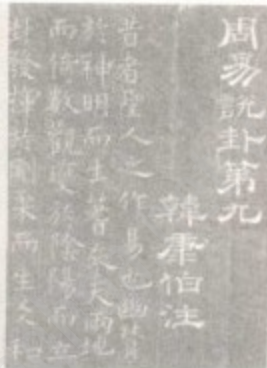 周易説卦第九
韓康伯注
昔者聖人之作易也幽賛
於神明而生蓍参天兩地
而倚數觀變於陰陽而立
卦發揮於剛柔而生爻和